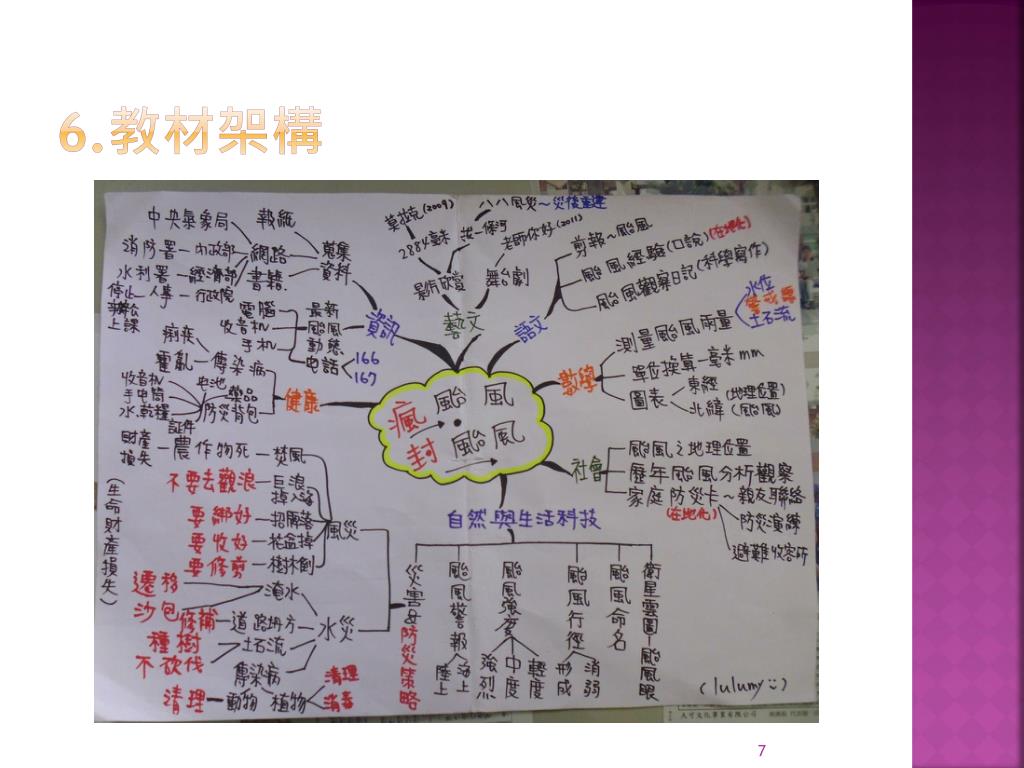 6.教材架構
瘋颱風
封颱風
資訊
蒐集資料
網路
書籍
報紙
中央氣象局
消防署－內政部
水利署－經濟部
停止辦公上課－人事－行政院
最新颱風動態
電腦
收音機
手機
電話
166
167
藝文
影片欣賞
莫拉克(2009)
2884毫米
八八風災～災後重建
舞台劇
老師你好(2011)
語文
剪報～颱風
颱風經驗(口說)(在地化)
颱風觀察日記(科學寫作)
數學
測量颱風雨量
水位
土石流
單位換算－毫米mm
圖表
東經
北緯
(地理位置)
(颱風)
社會
颱風之地理位置
歷年颱風分析觀察
家庭防災卡～親友聯絡
(在地化)
防災演練
避難收容所
健康
傳染病
痢疾
霍亂
防災背包
電池
藥品
收音機
手電筒
水.乾糧
證件
自然與生活科技
災害&防災策略
颱風警報
陸上
海上
颱風強度
強烈
中度
輕度
颱風行徑
形成
消弱
颱風命名
衛星雲圖－颱風眼
風災
焚風
農作物死
財產損失
巨浪
掉入海
不要去觀浪
招牌落
要綁好
花盆掉
要收好
樹林倒
要修剪
(生命財產損失)
水災
淹水
遷移
沙包
道路坍方
修補
土石流
種樹
不砍伐
傳染病
動物
清理
植物
清理
消毒
(lulumy:)
7